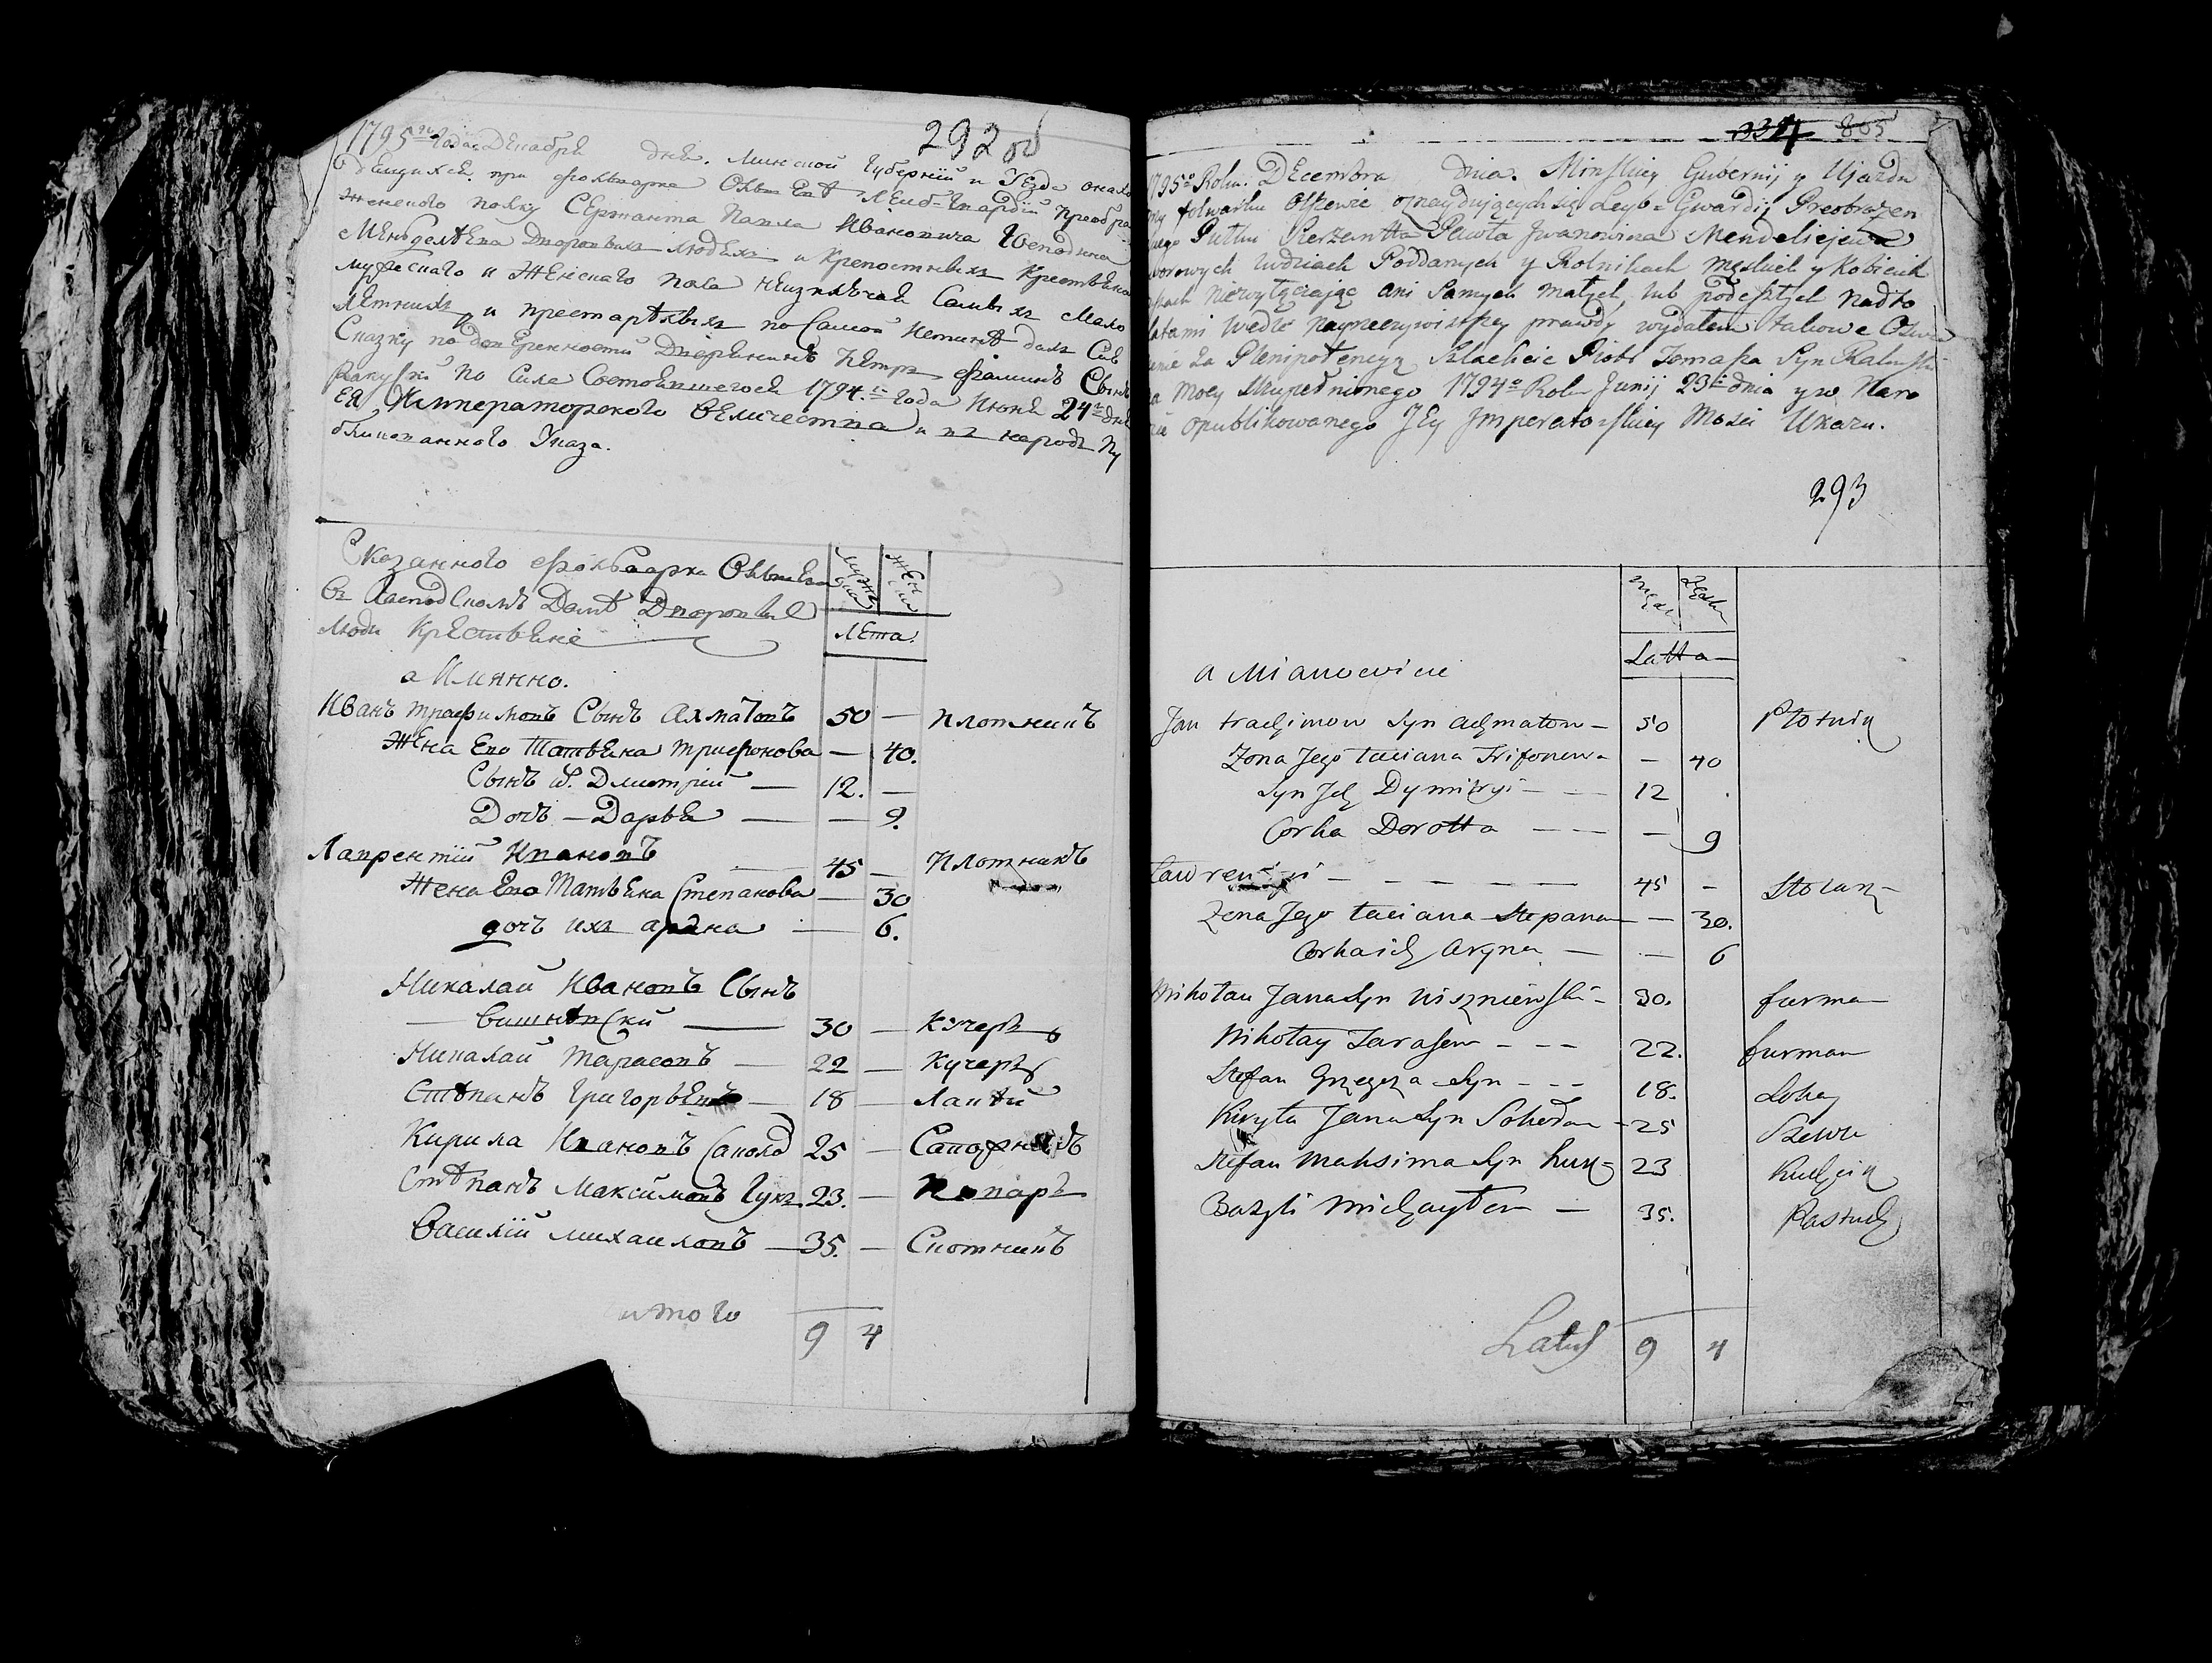 292 об
1795го Года Декабря дня. Минской Губернии и Уезда она
денцихся при фольварке Ольшеве Лейб-Гвардии Преобра
женского полку Сержанта Павла Ивановича Господина
Менделеева Дворовых людех и Крепостных Крестьяна
мужеского и Женского пола неизключая Самых Мало
летних и престарелых по Самой Истине дал Сию
Сказку по доверенности Дворянинъ Петръ Фоминъ Сынъ
по Силе Состоявшегося 1794го Года Июня 24го дня
Ея Императорского Величества и въ народъ Пу
бликованного Указа.
Сказанного Фольварка
Въ Господскомъ Доме Дворовые
Люди Крестьяне
мужска женска
Лета.
а Имянно.
Иванъ Трафимовъ Сынъ Ахматовъ 50 — Плотникъ
Жена Его Татьяна Трифонова — 40.
Сынъ их Дмитрий — 12. —
Дочь — Дарья — — 9.
Лаврентий Ивановъ — 45 — Плотникъ
Жена Его Татьяна Степанова — 30
дочь ихъ арина — 6.
Николай Ивановъ Сынъ
— Вишневский — 30 — Кучеръ
Николай Тарасовъ — 22 — Кучеръ
Степанъ Григорьевъ — 18 — Лакей
Кирила Ивановъ Сокол 25 — Сапожникъ
Степанъ Максимовъ Гукъ 23. — Поваръ
Василий Михаиловъ — 35. — Скотникъ
итого 9 4
334 805
1795o Roku. Decembra dnia. Minskiey Gubernij y Ujazdu
folwarku Olszewie oznaydujących się Leyb-Gwardij Preobrażen
Pułku Sierżantta Pawła Jwanowicza Mendeliejewa
dworowych ludziach Poddanych y Rolnikach męskich y Kobiecik
niewyłączaiąc ani Samych małych, lub podeszłych nadto
latami wedle prawdy wydałem takowe
za Plenipotencyą Szlachcic Piotr Tomasza Syn
1794o Roku Junij 23o dnia y w Naro
opublikowanego Jey Jmperatorskiey Mosci Ukazu.
293
Latta
a Mianowicie
Jan trachimow Syn achmatow — 50 Płotnik
Zona Jego taciana Trifonowa — 40
Syn Jch Dymitryi — — 12
Corka Dorotta — — — 9
Ławrenti — — — — 45 — Stolarz
Zona Jego taciana Stepana — — 30.
Corka ich aryna — — 6
Mikołay Jana Syn Wiszniewski — 30. furman
Mikołay Tarasow — — — 22. furman
Stefan Grzegorza Syn — — — 18. Lokay
Kiryła Jana Syn — 25 Szewc
Stefan Maksima Syn huk 23 Kuchcik
Bazyli Michayłow — 35. Pastuch
Latus 9 4